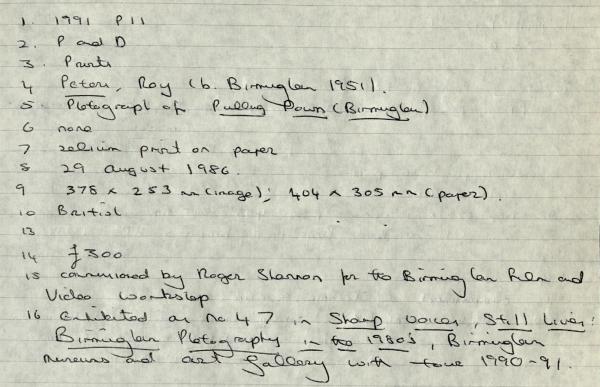 1. 1991 P 11
2. P and D
3. Prints
4 Peters, Roy (b. Birmingham 1951).
5. Photograph of Pulling Down (Birmingham)
6 none
7 selenium print on paper
8 29 August 1986.
9 378 x 253 mm (image); 404 x 305 mm (paper).
10 British
13
14 £300
15 commissioned by Roger Shannon for the Birmingham Film and
Video Workshop
16 Exhibited as no. 47 in Sharp Voices, Still Lives:
Birmingham Photography in the 1980s, Birmingham
museums and art gallery with tour 1990-91.